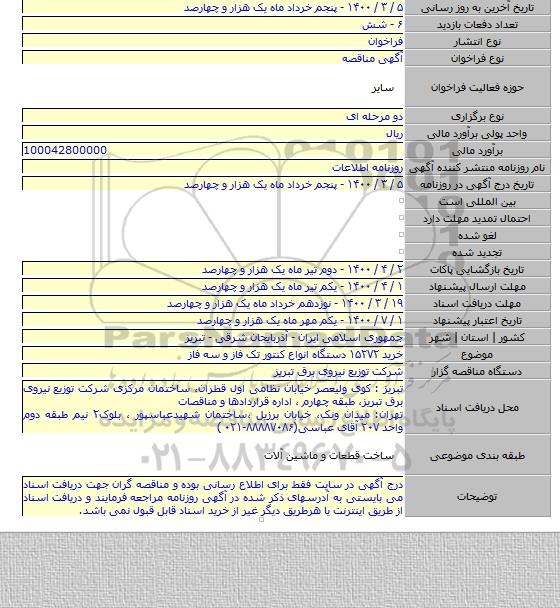 تاریخ آخرین به روز رسانی ۵ / ۳ / ۱۴۰۰ - پنجم خرداد ماه یک هزار و چهارصد
تعداد دفعات بازدید ۶ - شش
نوع انتشار فراخوان
نوع فراخوان آگهی مناقصه
حوزه فعالیت فراخوان سایر
نوع برگزاری دو مرحله ای
واحد پولی برآورد مالی ریال
برآورد مالی 100042800000
نام روزنامه منتشر کننده آگهی روزنامه اطلاعات
تاریخ درج آگهی در روزنامه ۵ / ۳ / ۱۴۰۰ - پنجم خرداد ماه یک هزار و چهارصد
بین المللی است
احتمال تمدید مهلت دارد
لغو شده
تجدید شده
تاریخ بازگشایی پاکات ۲ / ۴ / ۱۴۰۰ - دوم تیر ماه یک هزار و چهارصد
مهلت ارسال پیشنهاد ۱ / ۴ / ۱۴۰۰ - یکم تیر ماه یک هزار و چهارصد
مهلت دریافت اسناد ۱۹ / ۳ / ۱۴۰۰ - نوزدهم خرداد ماه یک هزار و چهارصد
تاریخ اعتبار پیشنهاد ۱ / ۷ / ۱۴۰۰ - یکم مهر ماه یک هزار و چهارصد
کشور | استان | شهر جمهوری اسلامی ایران - آذربایجان شرقی - تبریز
موضوع خرید ۱۵۲۷۲ دستگاه انواع کنتور تک فاز و سه فاز
دستگاه مناقصه گزار شرکت توزیع نیروی برق تبریز
محل دریافت اسناد
تبریز : کوی ولیعصر خیابان نظامی اول قطران، ساختمان مرکزی شرکت توزیع نیروی
برق تبریز، طبقه چهارم ، اداره قراردادها و مناقصات
تهران: میدان ونک، خیابان برزیل ،ساختمان شهیدعباسپور ، بلوک۲ نیم طبقه دوم
واحد ۲۰۷ آقای عباسی(۸۸۸۷۰۸۶-۰۲۱ )
طبقه بندی موضوعی ساخت قطعات و ماشین آلات
توضیحات
درج آگهی در سایت فقط برای اطلاع رسانی بوده و مناقصه گران جهت دریافت اسناد
می بایستی به آدرسهای ذکر شده در آگهی روزنامه مراجعه فرمایند و دریافت اسناد
از طریق اینترنت یا هرطریق دیگر غیر از خرید اسناد قابل قبول نمی باشد.
ParsNamadData
۰۲۱-۸۸۳۴۹۶۷۰-۵